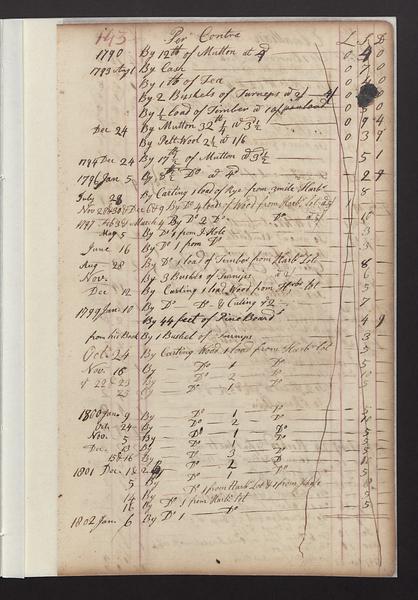 143 Per Contra L S D
1790 By 12 lb of Mutton at 4 0 4
1793 Aug 1 By Cash 0
By 1 lb of Tea 0
By 2 Bushels of Turneps @ 2/ 0 4
By ½ load of Timber @ 10/ 0
Dec 24 By Mutton 32 lb @ 3½ 0 9 4
By Pelt Wool 2½ @ 1/6 0 3 9
1794 Dec 24 By 17 lb of Mutton @ 3½ 5 1
1796 Jan 5 By 8½ Do @ 4d 2
July 28 By Carting 1 load of Rye from 8
Nov 28 & 30 & Dec 6 & 9 By Do 4 loads of Wood from Harbr Lot
1797 Feb 3 & March 4 By Do 2 Do Do
May 5 By Do 1 from 3
June 16 By Do 1 from Do 3
Aug 28 By Do 1 load of Timber from Harbr Lot 8
Nov. By 3 Bushels of Turnips @ 2/ 6
Dec 12 By Carting 1 load Wood from Harbr Lot 5
1799 Jan 10 By Do Do & Cuting 7
By 44 feet of Pine Boards 4 9
from his Book By 1 Bushel of Turnips 3
Oct. 24 By Carting Wood 1 load from Harbr Lot 5
Nov. 16 By Do 1 Do 5
" 22 & 23 By Do 2 Do
23 By Do 1 Do 5
1800 Jany 9 By Do 1 Do 5
Oct. 24 By Do 2 Do
Nov. 5 By Do 1 Do 5
Dec. 13 By Do 1 Do 5
15 & 16 By Do 3 Do
1801 Dec 1 & 2 By Do 2 Do
5 By Do 1 from Harbr Lot & 1 from
14 By Do 1 from Harbr Lot 5
16 By Do 1 5
1802 Jan. 6 By Do 1 Do 5